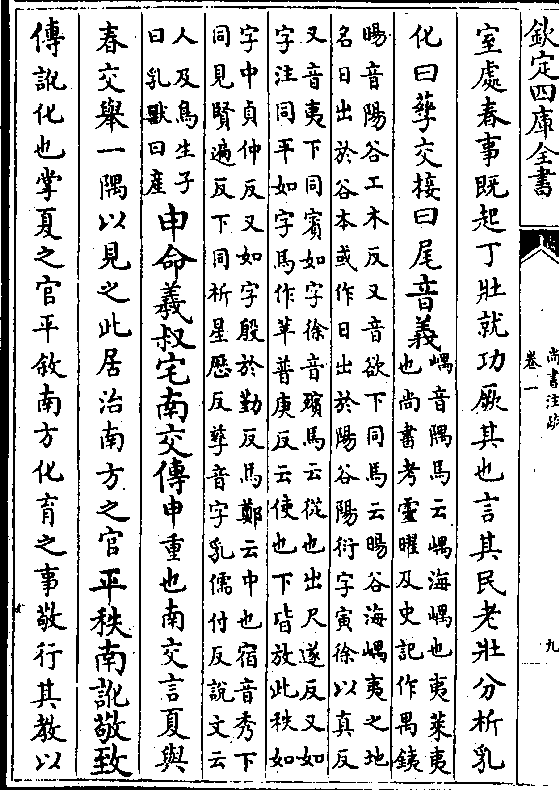 欽定四庫全書
尚書注疏
卷一
九
室處春事既起丁壯就功厥其也言其民老壯分析乳
化曰孳交接曰尾音義
嵎音隅馬云嵎海嵎也夷萊夷
也尚書考靈曜及史記作禺銕
暘音陽谷工木反又音欲下同馬云暘谷海嵎夷之地
名日出於谷本或作日出於陽谷陽衍字寅徐以真反
又音夷下同賓如字徐音殯馬云從也出尺遂反又如
字注同平如字馬作苹普庚反云使也下皆放此秩如
字中貞仲反又如字殷於勤反馬鄭云中也宿音秀下
同見賢遍反下同析星歷反孳音字乳儒付反說文云
人及鳥生子
曰乳獸曰產
申命羲叔宅南交傳申重也南交言夏與
春交舉一隅以見之此居治南方之官平秩南訛敬致
傳訛化也掌夏之官平敘南方化育之事敬行其教以